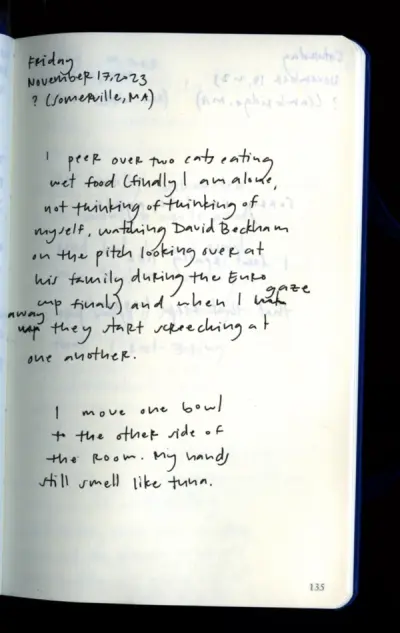 Friday
November 17, 2023
? (Somerville, MA)
I peer over two cats eating
wet food (finally I am alone,
not thinking of thinking of
myself, watching David Beckham
on the pitch looking over at
his family during the Euro
gaze
cup finals) and when I
away
they start screeching at
one another.
I move one bowl
to the other side of
the room. My hands
still smell like tuna.
135